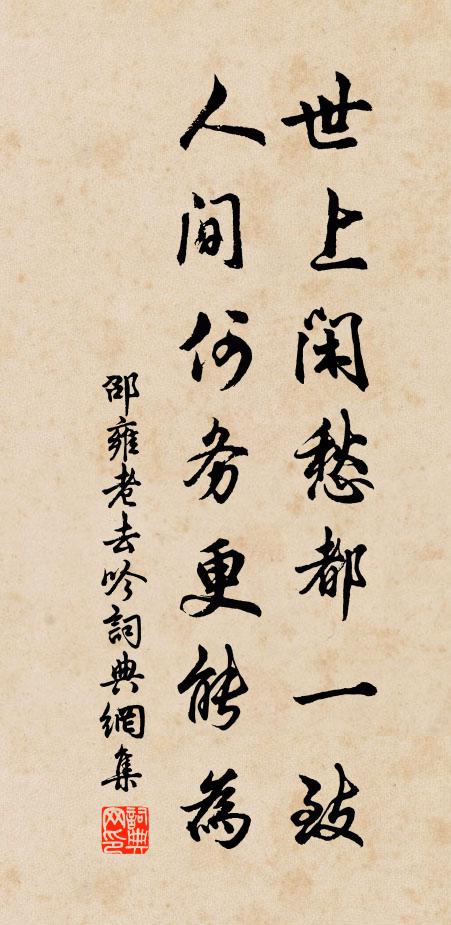 世上闲愁都一致
人间何务更能為
邵雍老去吟詞典網集
詞典网印